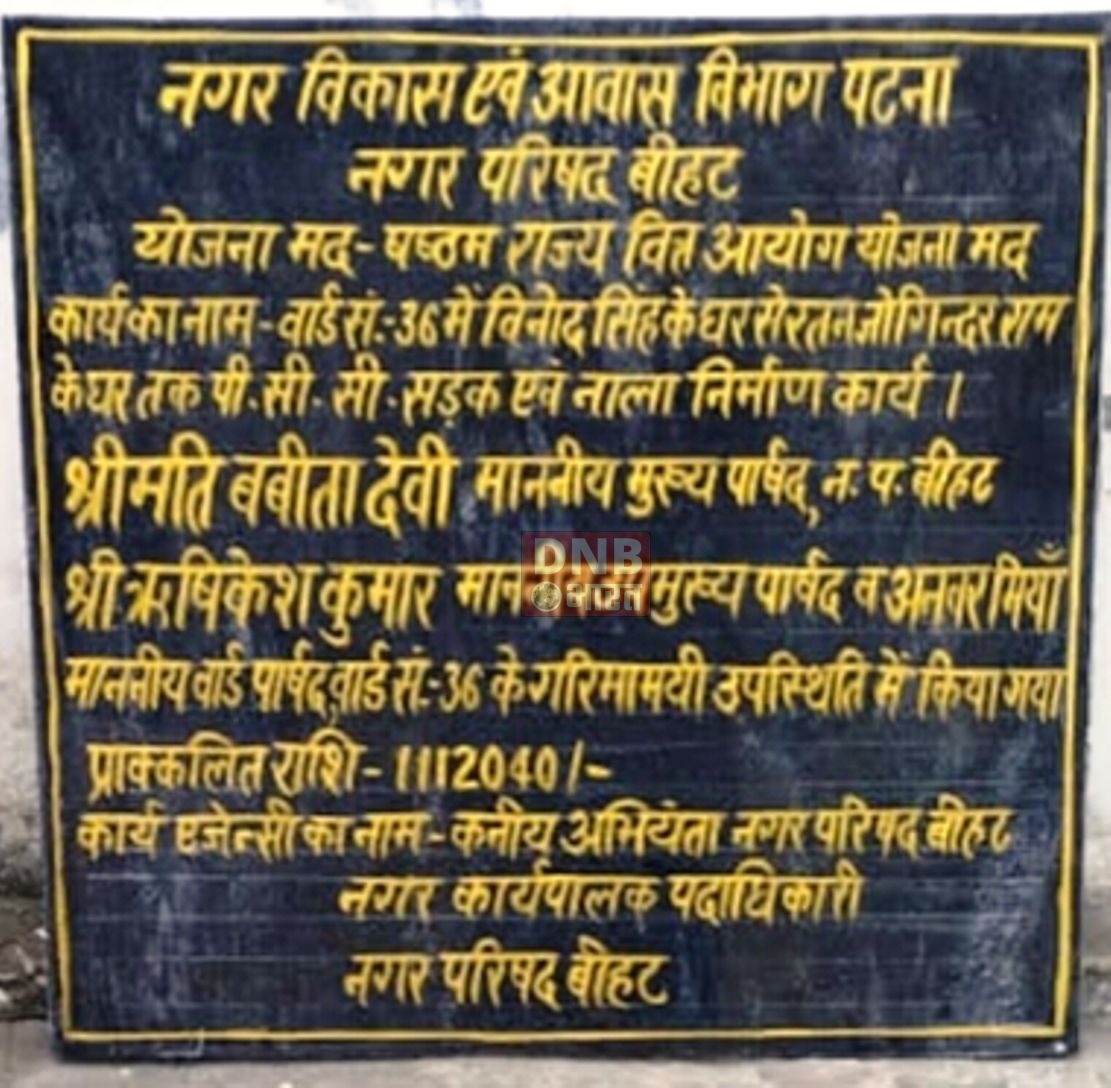 नगर विकास एवं आवास विभाग पटना
नगर परिषद बीहट
योजना मद - षष्ठम राज्य वित्त आयोग योजना मद
कार्य का नाम - वार्ड सं.-36 में विनोद सिंह के घर से रतन जोगिन्दर राम
के घर तक पी.सी.सी. सड़क एवं नाला निर्माण कार्य ।
श्रीमति बबीता देवी माननीय मुख्य पार्षद, न. प. बीहट
श्री ऋषिकेश कुमार मुख्य पार्षद व अनवर मियाँ
DNB
भारत
माननीय वार्ड पार्षद, वार्ड सं.-36 के गरिमामयी उपस्थिति में किया गया
प्राक्कलित राशि - 1112040/-
कार्य एजेन्सी का नाम - कनीय अभियंता नगर परिषद बीहट
नगर कार्यपालक पदाधिकारी
नगर परिषद बीहट